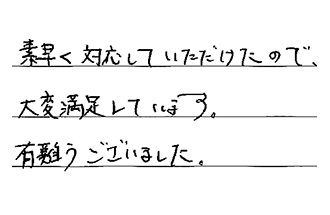 素早く対応していただけたので、
大変満足しています。
有難うございました。